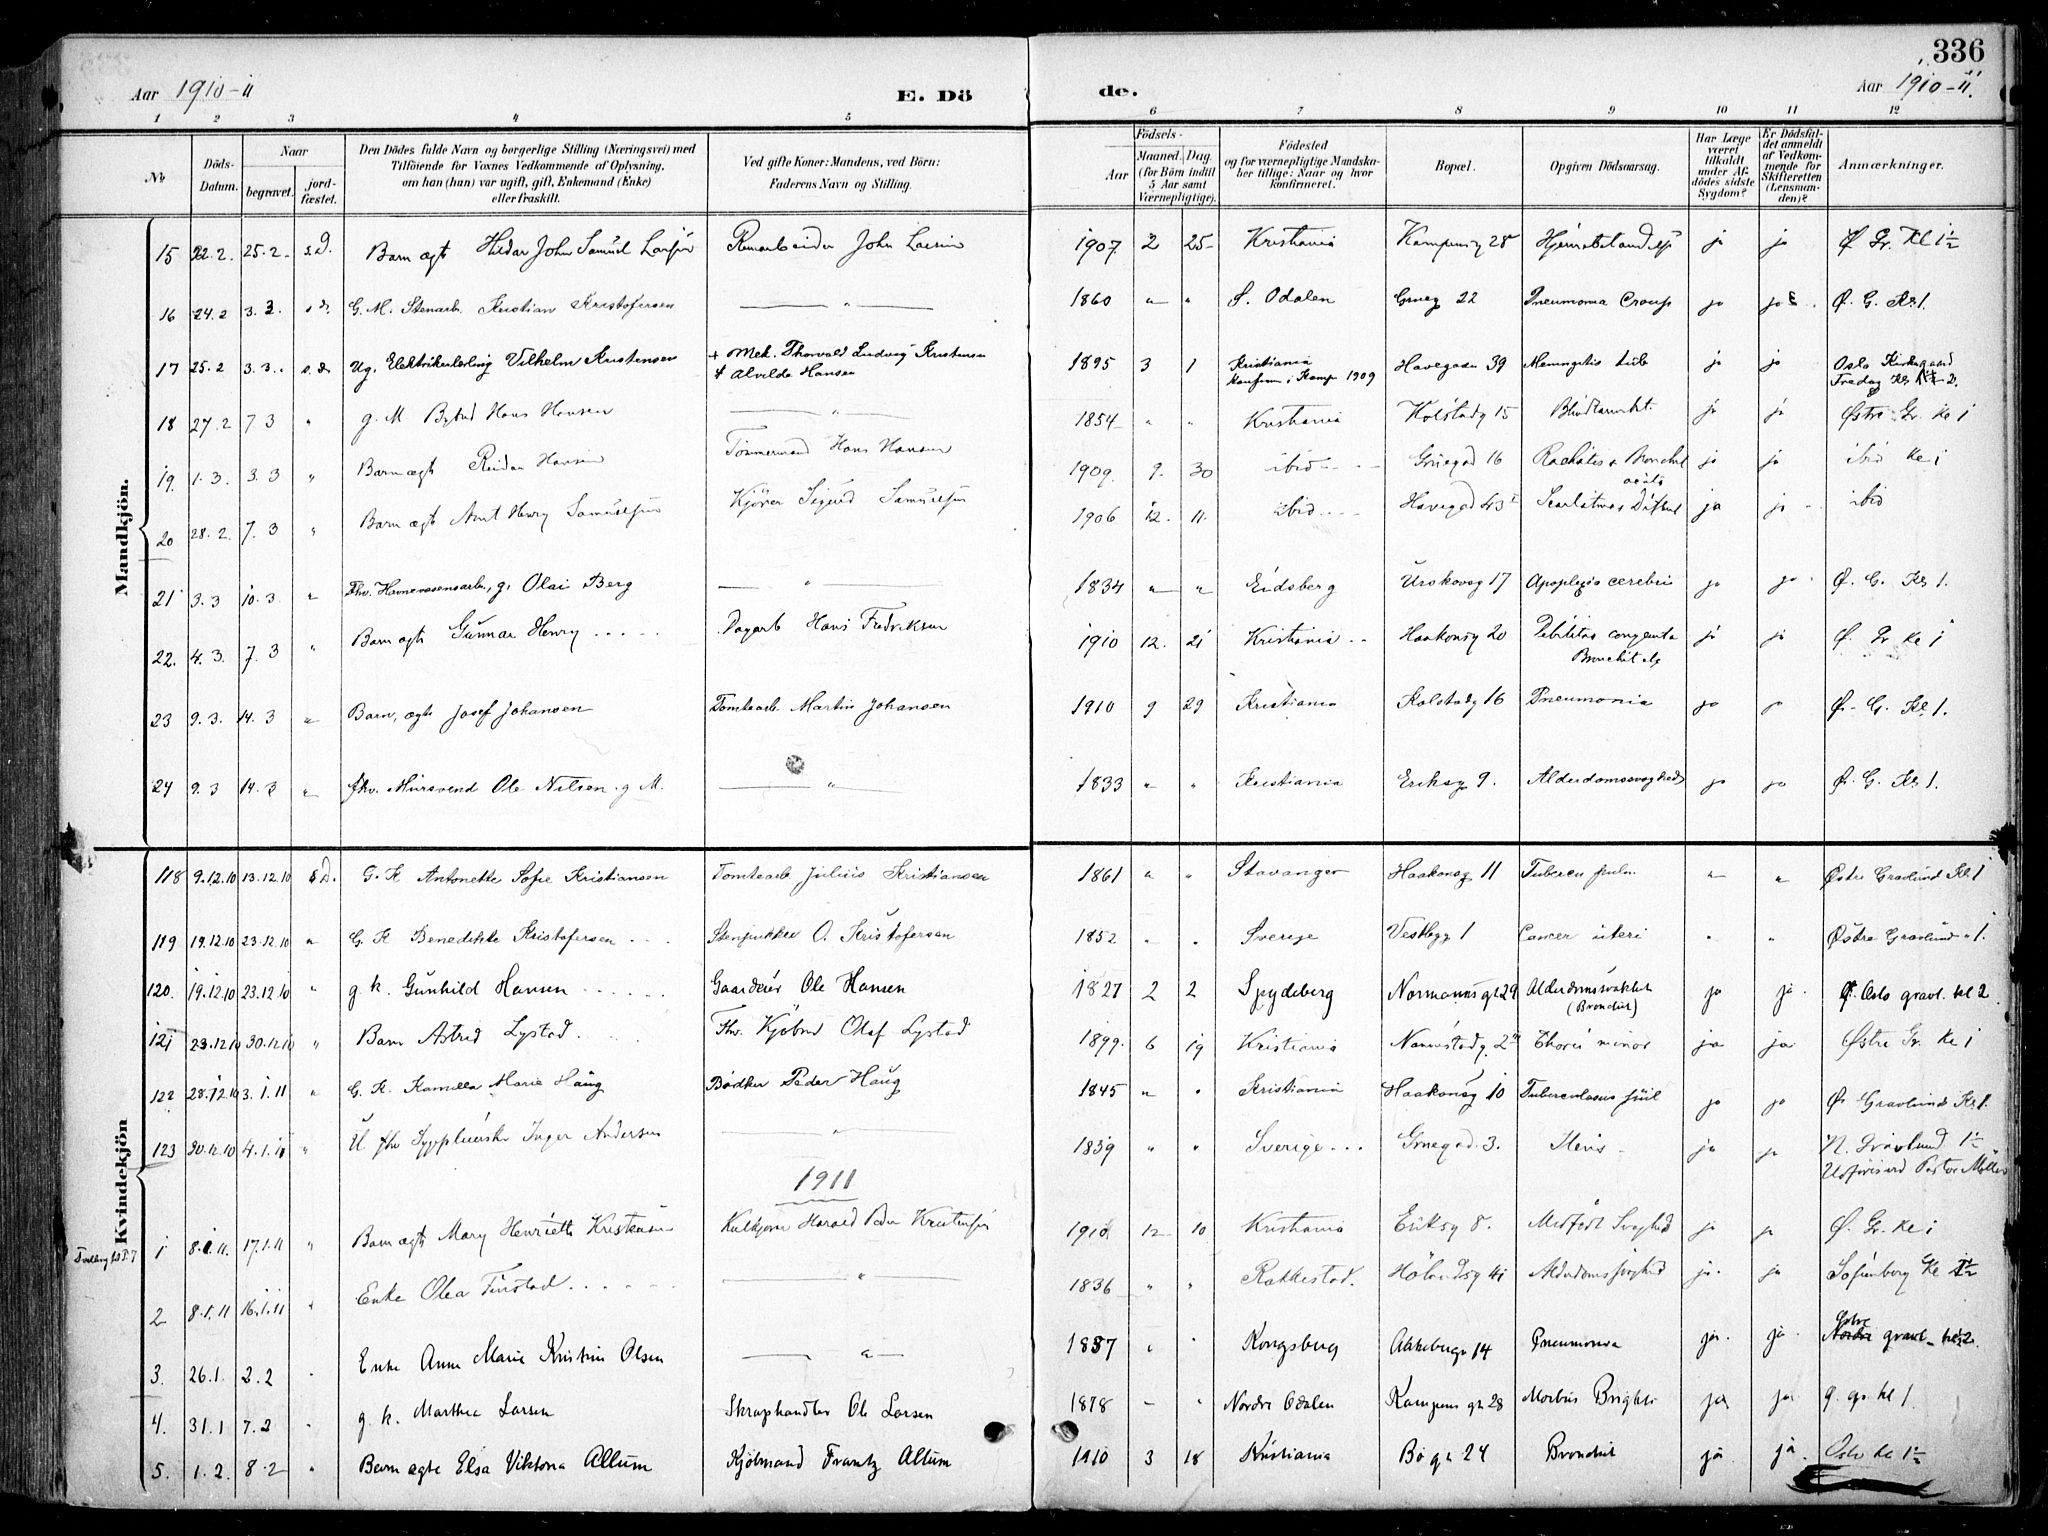 336
Aar 1910-11
E. Dö
de.
Aar 1910-11.
1 2 3 4 5 6 7 8 9 10 11 12
No
Döds-Datum.
Naar
begravet.
jord-fæstet.
Den Dödes fulde Navn og borgerlige Stilling (Næringsvei) med
Tilföiende for Voxnes Vedkommende af Oplysning,
om han (hun) var ugift, gift, Enkemand (Enke)
eller fraskilt.
Ved gifte Koner: Mandens, ved Börn:
Faderens Navn og Stilling.
Födsels-
Aar
Maaned. Dag.
(for Börn indtil
5 Aar samt
Værnepligtige).
Födested
og for værnepligtige Mandska-
ber tillige: Naar og hvor
konfirmeret.
Bopæl.
Opgiven Dödsaarsag.
Har Læge
været
tilkaldt
under Af-
dödes sidste
Sygdom?
Er Dödsfal-
det anmeldt
af Vedkom-
mende for
Skifteretten
(Lensman-
den)?
Anmærkninger.
Mandkjön.
15 22.2. 25.2. s.D. Barn ægt Hildar John Samuel Larsen John Larsen 1907. 2 25 Kristiania Kampensg 28 ja ja Ø Gr. Kl 1½
16 24.2 3.3. s.d. G. M. Stenarb. Kristian Kristofersen — " — 1860 " " S. Odalen Grueg 22 Pneumonia Croup ja ja Ø. G. Kl 1.
17 25.2 3.3. s.d. Ug. Elektrikerlærling Vilhelm Kristensen + Mek. Thorvald Ludvig Kristensen
+ Alvilde Hansen 1895 3 1 Kristiania
konfirm. i Kamp 1909 Havegaden 39 Meningitis tub ja ja Oslo Kirkegaard
Fredag Kl 2.
18 27.2 7.3 " g. M. Hans Hansen — " — 1854 " " Kristiania Kolstadg 15 ja ja Østre Gr. Kl 1
19. 1.3. 3.3 " Barn ægte Reidar Hansen Tömmermand Hans Hansen 1909. 9. 30 ibid Gruegad 16 Rachitis + Bronchit
acuta ja ja ibid Kl 1
20 28.2. 7.3 " Barn ægt Arnt Henry Samuelsen Kjörer Sigurd Samuelsen 1906 12. 11. ibid Havegad 43 Scarlatina Difteri ja ja ibid
21 3.3 10.3 " Fhv. Havnevæsensarb., g. Olai Berg — " — 1834 " " Eidsberg Urskovsg 17 Apoplexia cerebri ja ja Ø. G. Kl 1.
22. 4.3. 7.3 " Barn ægte Gunnar Henry Dagarb Hans Fredriksen 1910 12. 21 Kristiania Haakonsg 20 Debilitas congenita
Bronchit ja ja Ø. Gr Kl 1
23 9.3. 14.3 " Barn, ægte Josef Johansen Tomtearb. Martin Johansen 1910 9 29 Kristiania Kolstadg 16 Pneumonia ja ja Ø. G. Kl 1.
24 9.3 14.3 " fhv. Mursvend Ole Nilsen g M. — " — 1833 " " Kristiania Eriksg 9. Alderdomssvaghed ja ja Ø. G. Kl 1.
Kvindekjön
118 9.12.10 13.12.10 s.D. G. K Antonette Sofie Kristiansen Tomtearb Julius Kristiansen 1861 " " Stavanger Haakonsg 11 Tubercu pulm. " " Østre Gravlund Kl 1
119 19.12.10 23.12.10 " G. K Benedikte Kristofersen Stenpukker O. Kristofersen 1852 " " Sverige Vestbyg 1 Cancer uteri " " Østre Gravlund " 1.
120. 19.12.10 23.12.10 " g. k. Gunhild Hansen Gaardeier Ole Hansen 1827 2 2 Spydeberg Normannsgt 29 Alderdomsvakhet
(Bronchit) ja ja Oslo gravl. kl 2
121 23.12.10 30.12.10 " Barn Astrid Lystad Fhv. Kjöbmd Olaf Lystad 1899. 6 19 Kristiania Nannestadg. 2 Chorea minor ja ja Østre Gr. Kl 1
122 28.12.10 3.1.11 " G. K. Kamilla Marie Haug Bödker Peder Haug 1845 " " Kristiania Haakonsg 10 Tuberculosus pul ja ja Ø Gravlund Kl 1.
123 30.12.10 4.1.11 " U fhv Sypplerske Inger Andersen — " — 1839 " " Sverige Gruegad 3. Ileus ja ja N. Gravlund 1½
Udföres ved Pastor Möller
1911
Tvilling
1 8.1.11. 17.1.11 " Barn ægte Mary Henriette Kristensen Kulkjörer Harald Kristensen 1910. 12 10 Kristiania Eriksg 8. Medfödt Svaghed ja ja Ø. Gr. Kl 1
2 8.1.11 16.1.11 " Enke Olea Finstad — " — 1836 " " Rakkestad. Hölandsg 41 Alderdomssvaghed ja ja Sofienberg Kl 1½
3. 26.1. 2.2 " Enke Anne Marie Kristine Olsen — " — 1837 " " Kongsberg Akebergv 14 Pneumonia ja ja Østre
Nordre gravl. kl 2.
4. 31.1 7.2 " g. k. Marthea Larsen Skraphandler Ole Larsen 1878 " " Nordre Odalen Kampens gt 28 Morbus Brightii ja ja Ø. gr. kl 1
5. 1.2. 8.2 " Barn ægte Elsa Viktoria Allum Kjöbmand Frantz Allum 1910 3 18 Kristiania Bögt 24 Bronchit ja ja Oslo kl 1½